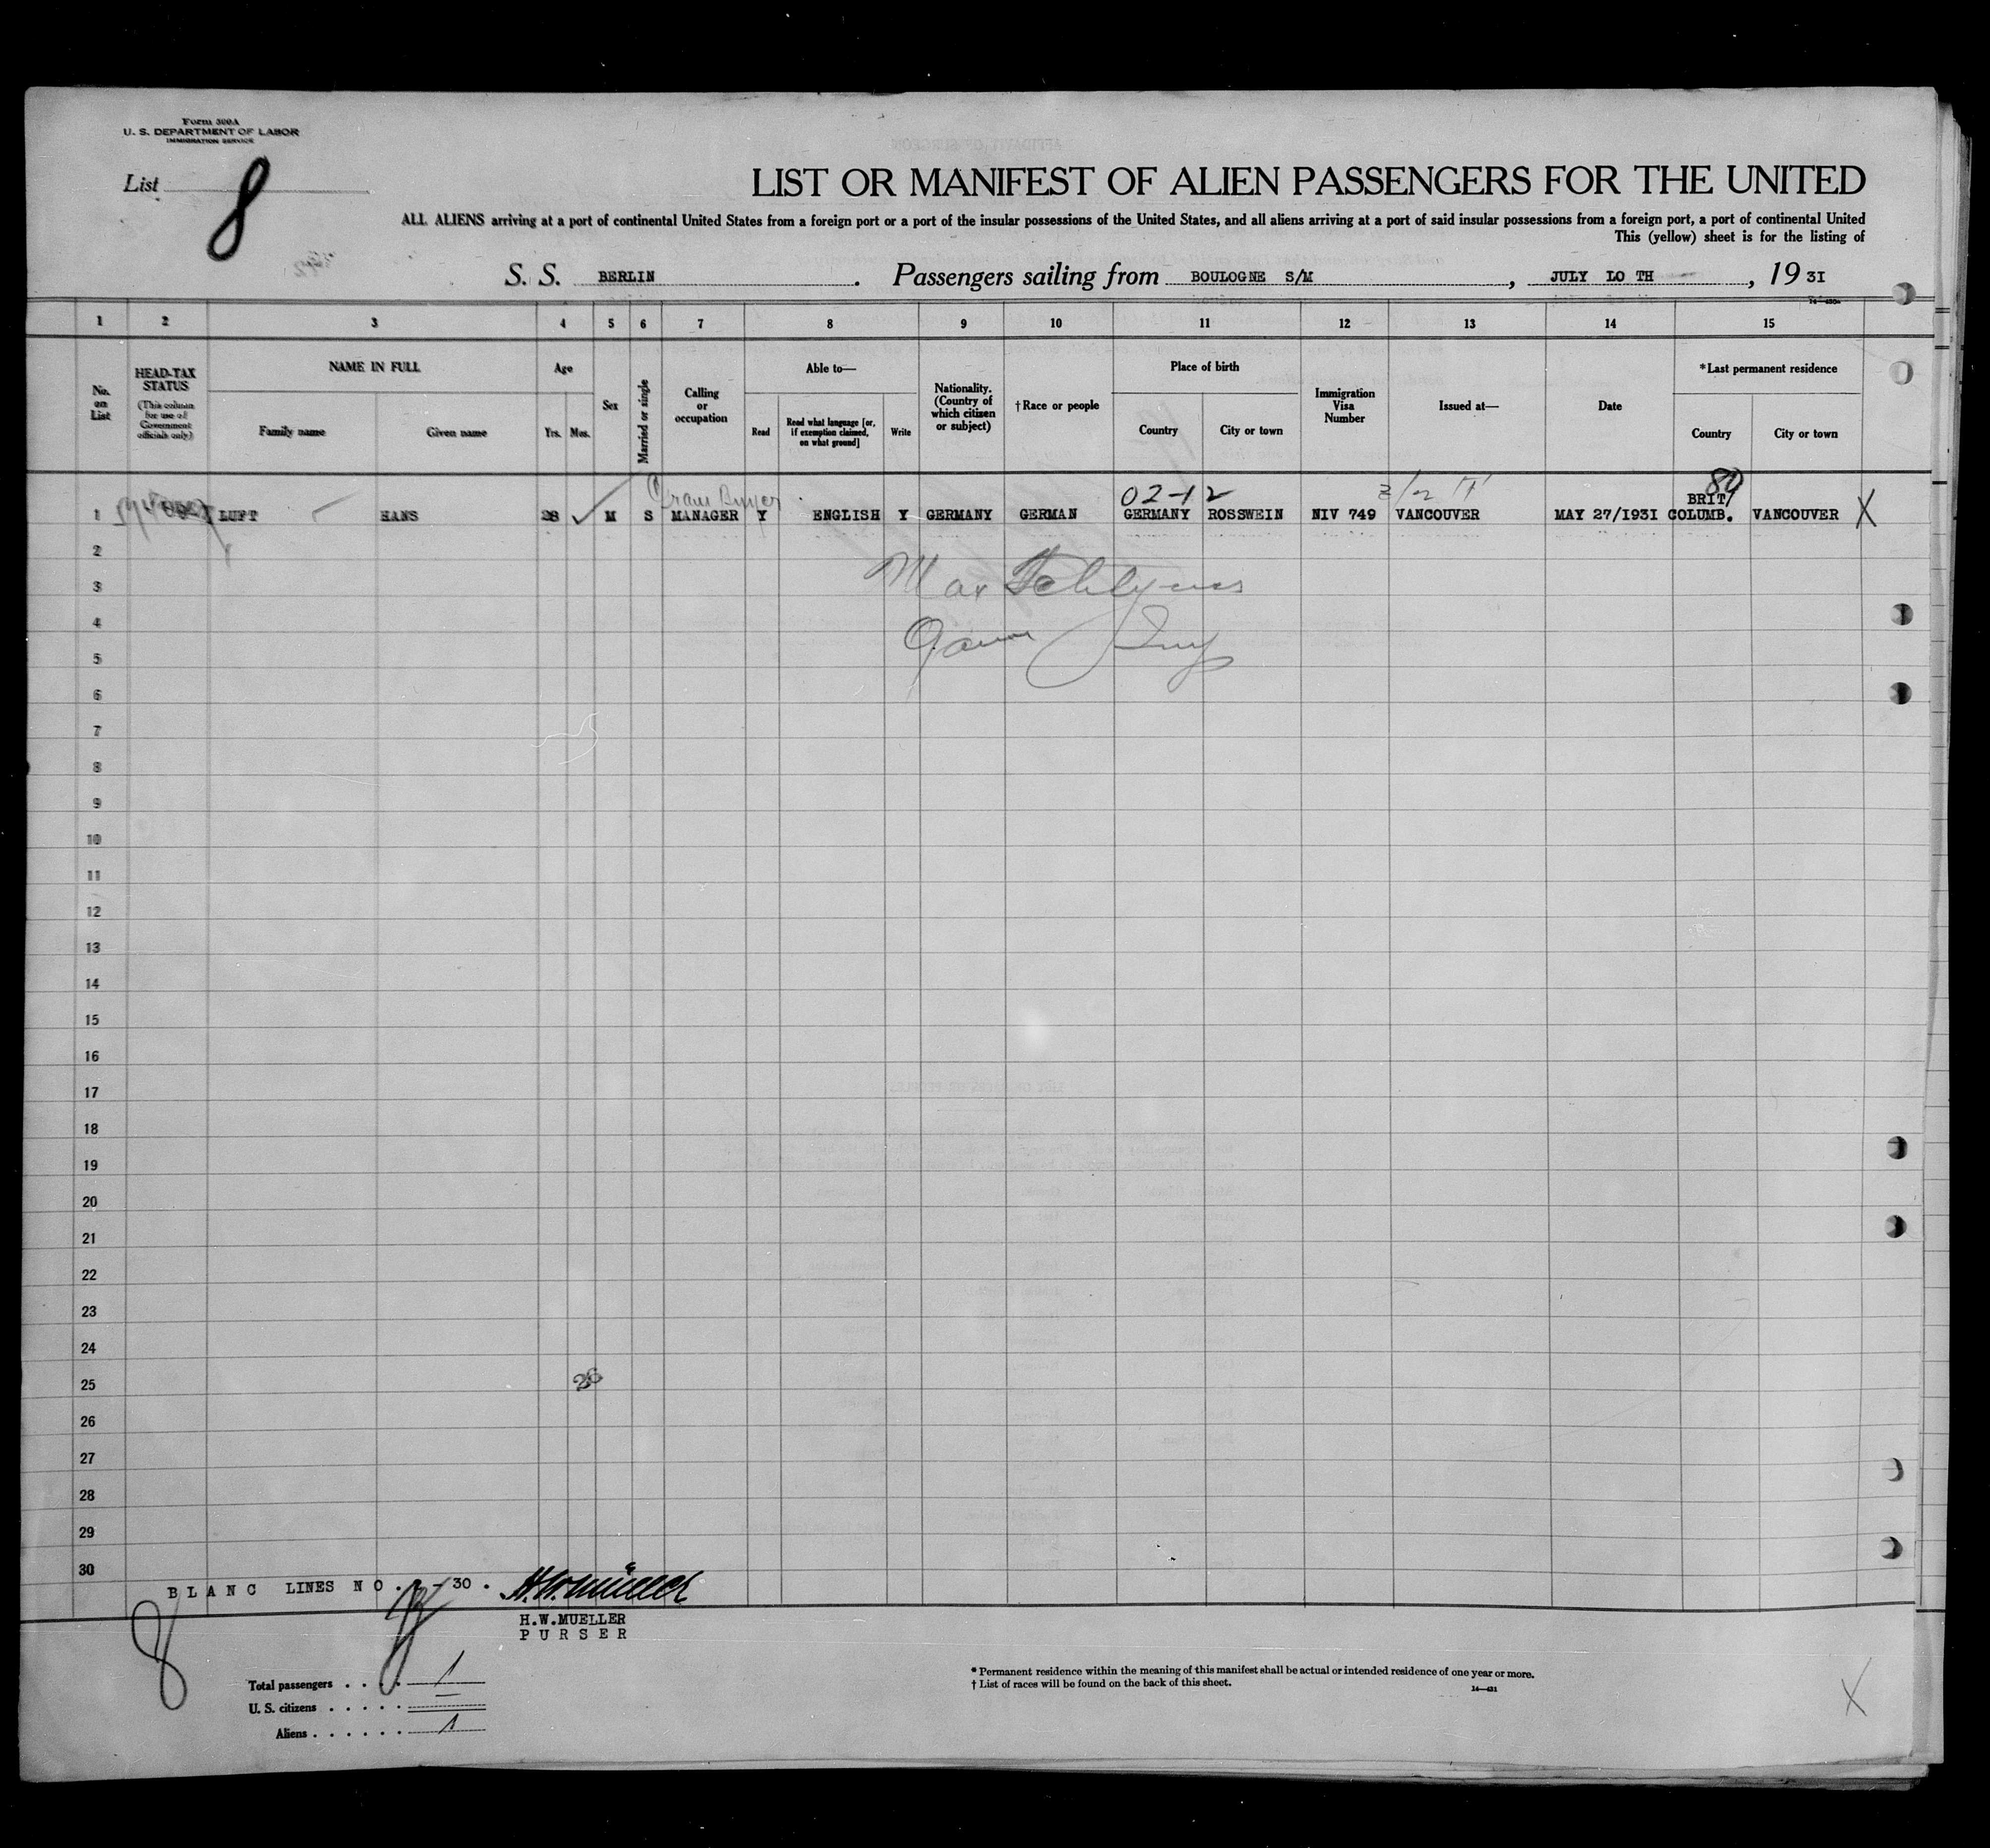 Form 500A
U. S. DEPARTMENT OF LABOR
IMMIGRATION SERVICE
List 8
LIST OR MANIFEST OF ALIEN PASSENGERS FOR THE UNITED
ALL ALIENS arriving at a port of continental United States from a foreign port or a port of the insular possessions of the United States, and all aliens arriving at a port of said insular possessions from a foreign port, a port of continental United
This (yellow) sheet is for the listing of
S. S. BERLIN. Passengers sailing from BOULOGNE S/M, JULY LO TH, 19 3I
1 2 3 4 5 6 7 8 9 10 11 12 13 14 15
No. on List
HEAD-TAX STATUS (This column for use of Government officials only)
NAME IN FULL
Family name
Given name
Age
Yrs. Mos.
Sex
Married or single
Calling or occupation
Able to—
Read
Read what language [or, if exemption claimed, on what ground]
Write
Nationality. (Country of which citizen or subject)
†Race or people
Place of birth
Country
City or town
Immigration Visa Number
Issued at—
Date
*Last permanent residence
Country
City or town
02-12
80
BRIT/
1 LUFT HANS 28 M S MANAGER Y ENGLISH Y GERMANY GERMAN GERMANY ROSSWEIN NIV 749 VANCOUVER MAY 27/1931 COLUMB. VANCOUVER X
2
3 Max
4
5
6
7
8
9
10
11
12
13
14
15
16
17
18
19
20
21
22
23
24
25
26
27
28
29
30
BLANC LINES NO. - 30.
H.W.MUELLER
PURSER
8
Total passengers . . . . 1
U. S. citizens . . . . . —
Aliens . . . . . . 1
* Permanent residence within the meaning of this manifest shall be actual or intended residence of one year or more.
† List of races will be found on the back of this sheet.
14—431
X